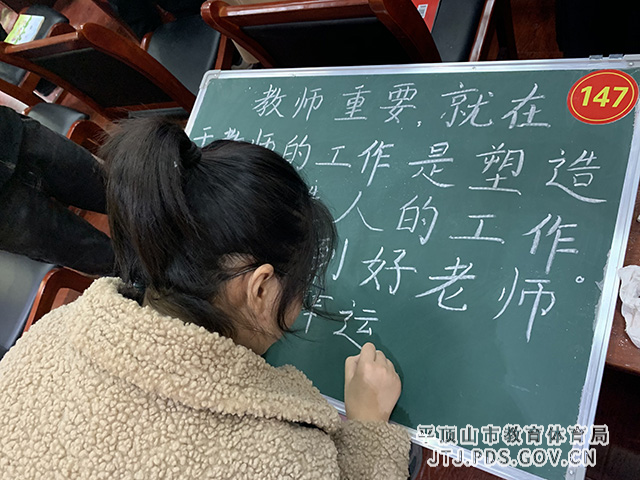 教师重要,就在
147
于教师的工作是塑造
人的工作
好老师。
运
平顶山市教育体育局
JTJ.PDS.GOV.CN